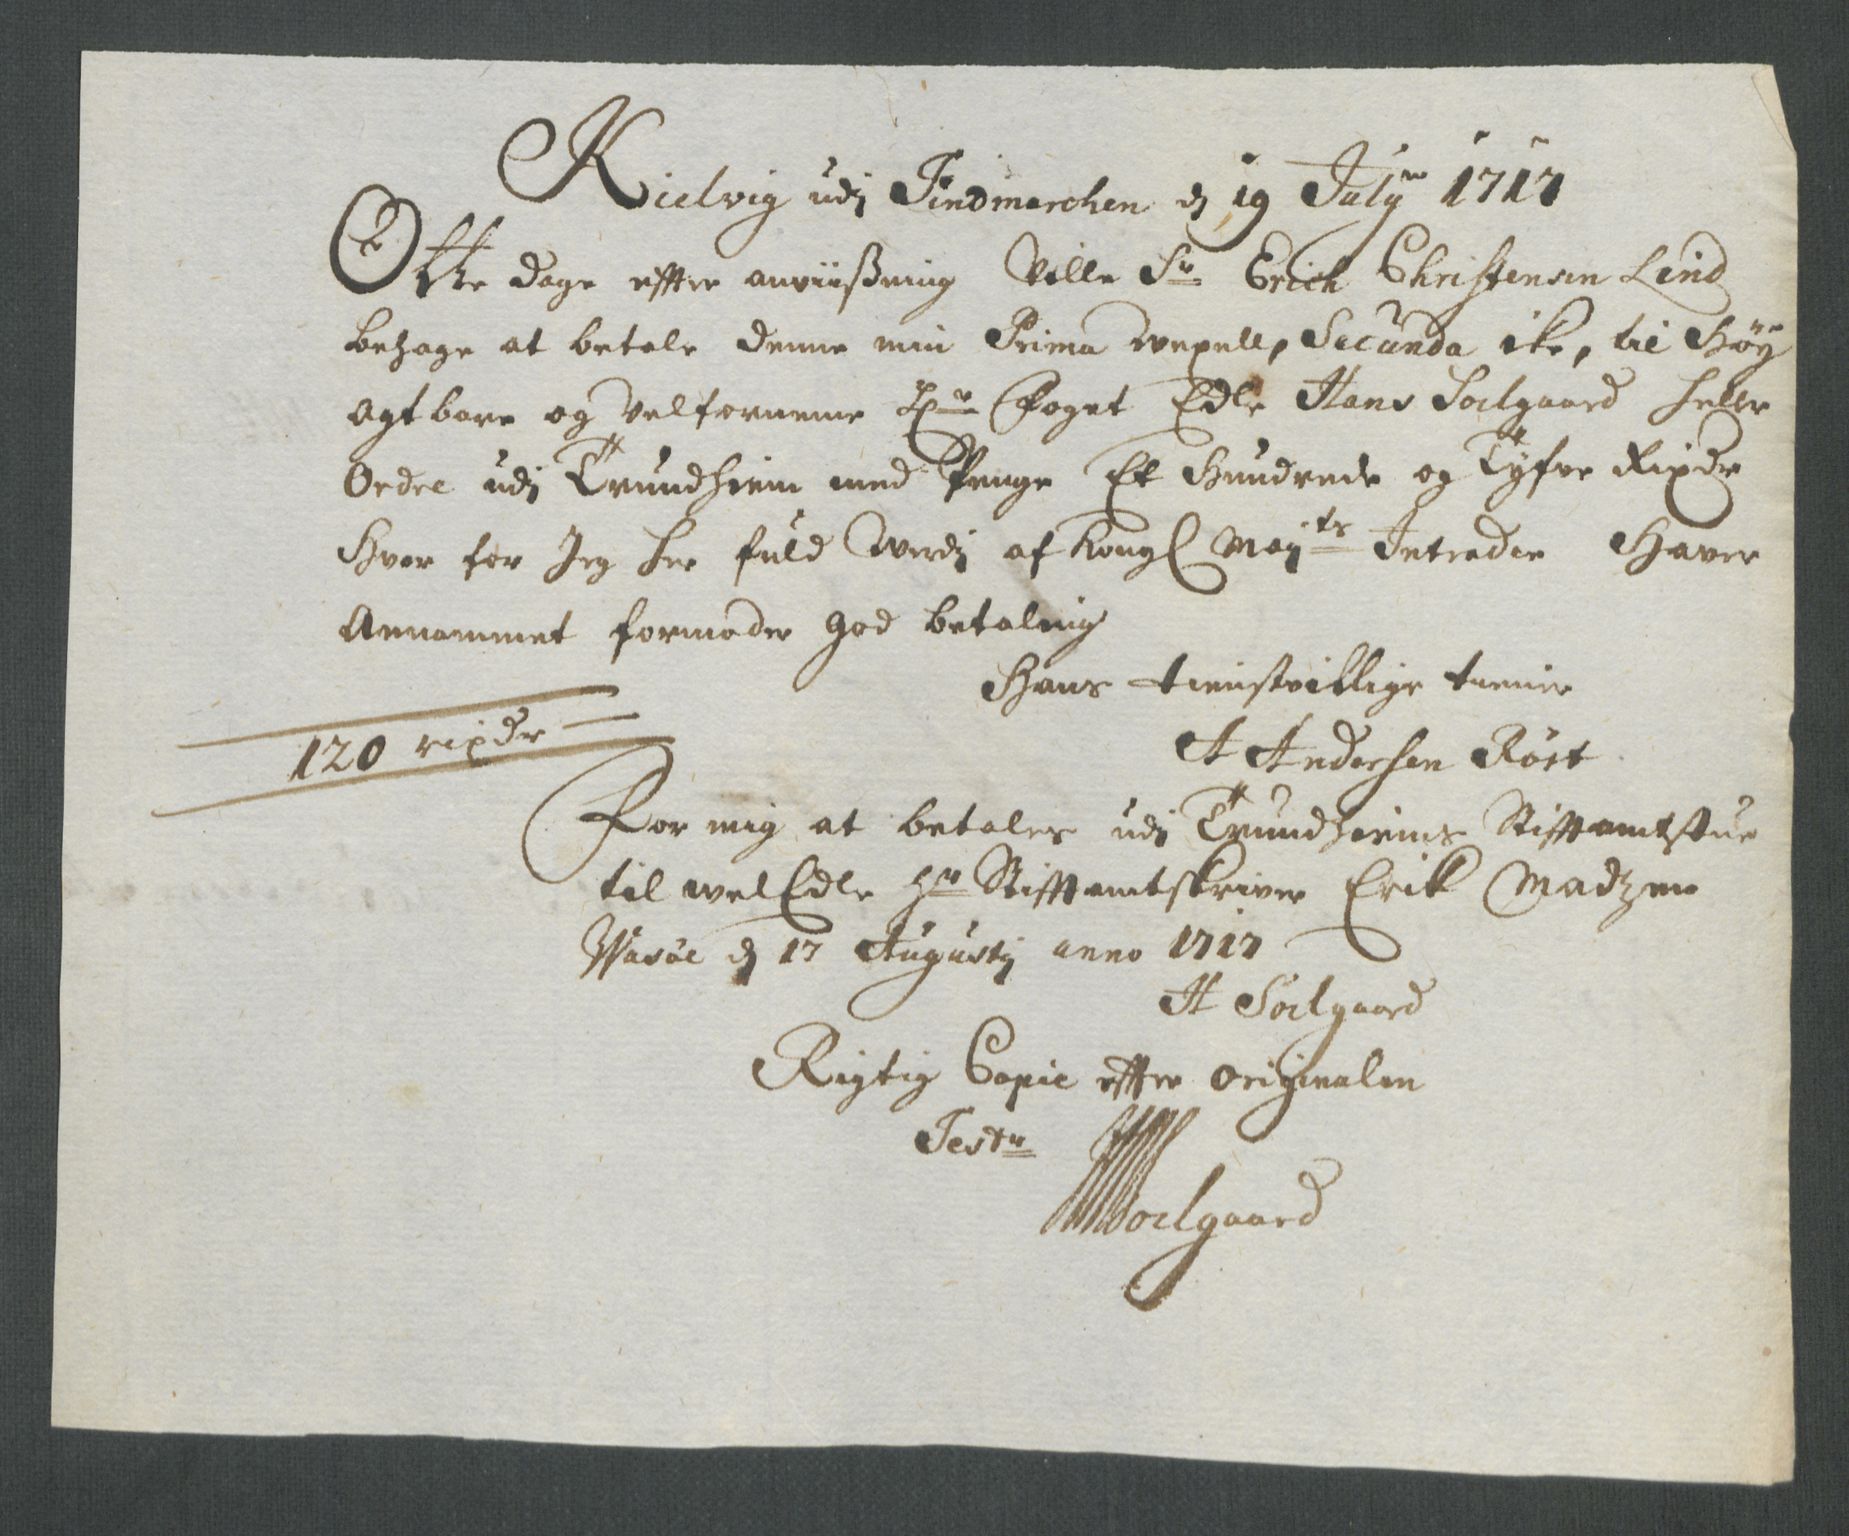 Kielvig udj Findmarchen dj 19 Julÿ 1717
Otte dage effter anviißning Ville Sr Erich Christensen Lind
behage at betale denne min Prima vexell, Secunda ike, til Høÿ
agtbare og Velfornemme Hr Foget Edle Hans Soelgaard heller
Ordre udj Trundhiem med Penge Et Hundrede og Tÿfve Rixdr
Hvor for Jeg her fuld Verdj af Kongl Maÿts Intrader Haver
Annammet formoder god betaling
Hans tienstvillige tiener
A Andersen Røst
120 rixdr
For mig at betales udj Trundhiems Stifftamtstue
til welEdle Hr Stifftamtskriver Erik Madzen
Wasøe dj 17 Augustj anno 1717
H Soelgaard
Rigtig Copie effter originalen
Test
HSoelgaard